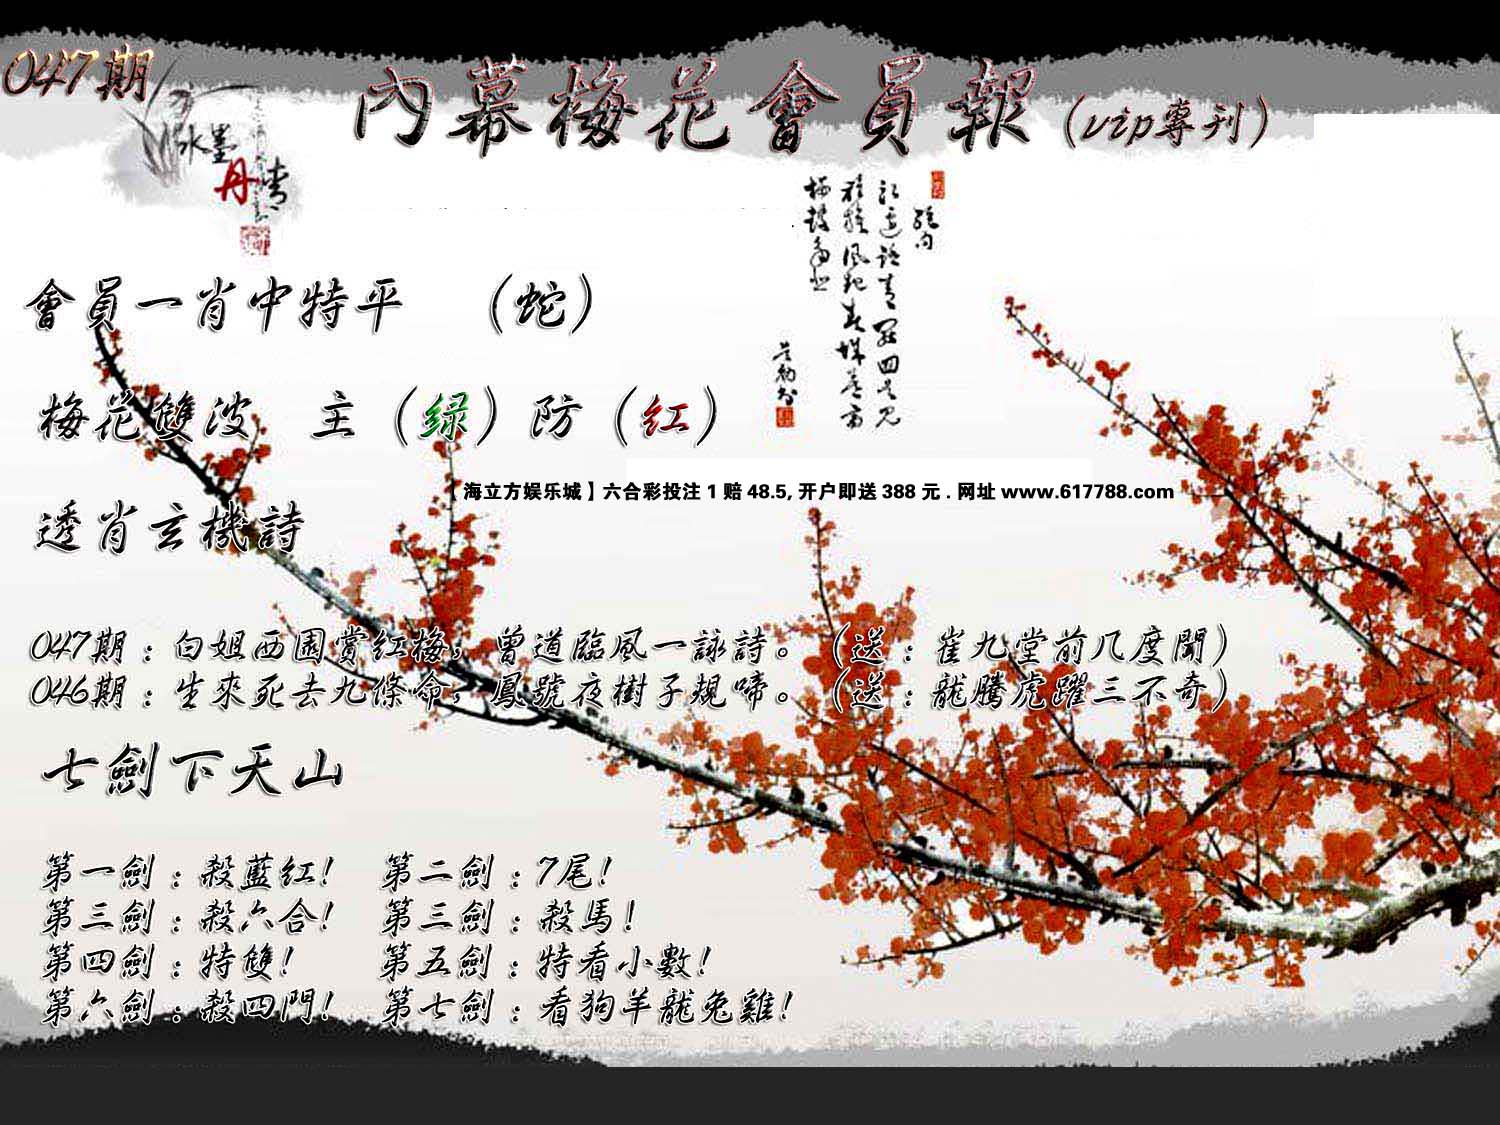 047期
內幕梅花會員報(vip專刊)
水墨
丹青
絕句
會員一肖中特平 (蛇)
梅花雙波 主(绿)防(红)
【海立方娱乐城】六合彩投注1赔48.5,开户即送388元.网址www.617788.com
透肖玄機詩
047期:白姐西園賞红梅,曾道臨風一詠詩。(送:崔九堂前几度聞)
046期:生來死去九條命,鳳號夜樹子規啼。(送:龍騰虎躍三不奇)
七劍下天山
第一劍:殺藍红! 第二劍:7尾!
第三劍:殺六合! 第三劍:殺馬!
第四劍:特雙! 第五劍:特看小數!
第六劍:殺四門! 第七劍:看狗羊龍兔雞!